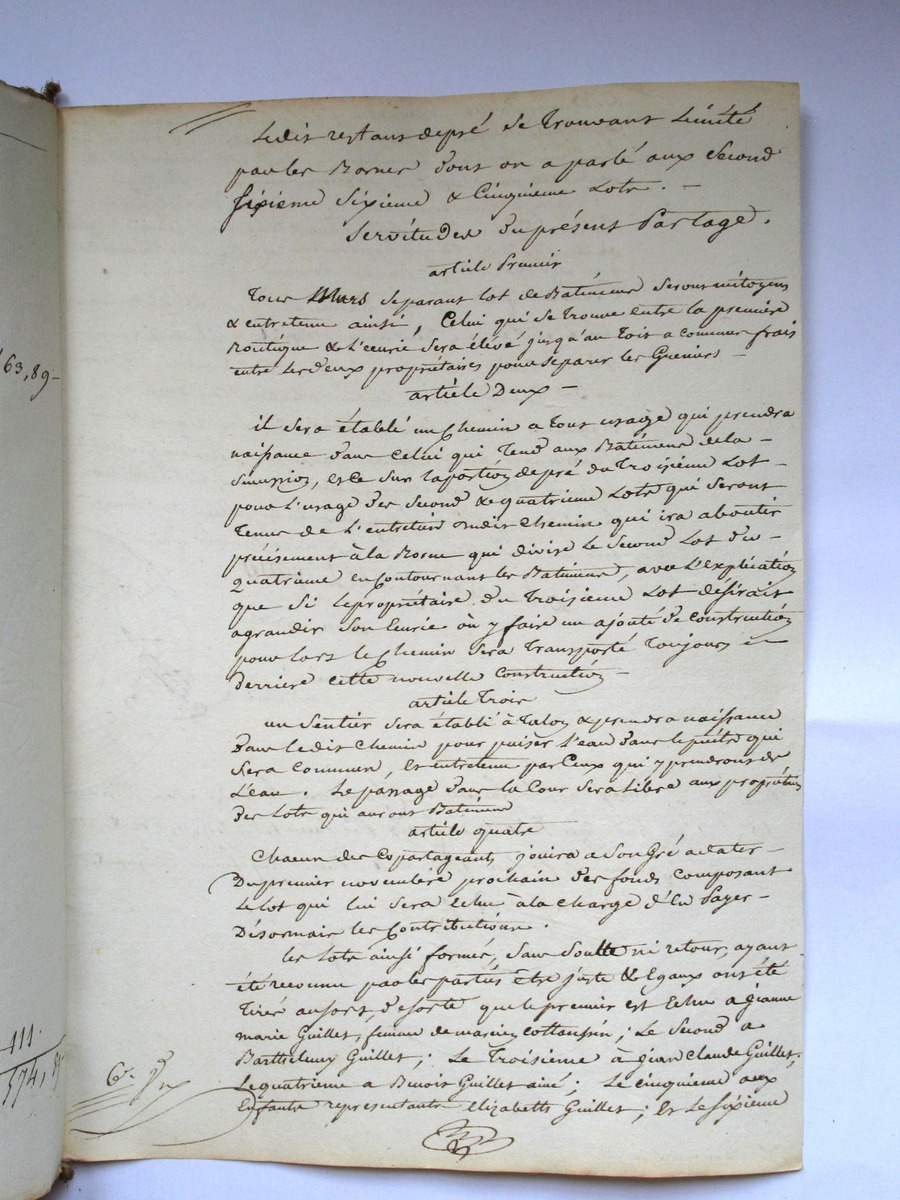 Ledit restant de pré se trouvant Limité
par les Bornes dont on a parlé aux Second
Sixieme & Cinquieme Lots. -
Servitudes du présent Partage.
article Premier
Tous Murs separant lot de Batiments seront mitoyens
& entretenu ainsi, Celui qui se trouve entre la premiere
Boutique & L'ecurie sera élevé jusqu'au Toit a commun frais
entre les deux propriétaires pour separer les Greniers -
article Deux -
il sera établi un Chemin a tous usage qui prendra
naissance dans Celui qui Tend aux Batiments de la -
63,89-
et Ce sur la portion de pré du Troisiéme Lot -
pour L'usage des Second & quatrieme Lots qui seront
Tenus de L'entretien dudit Chemin qui ira aboutir
précisement à la Borne qui divise le Second Lot du -
quatrieme en Contournant les Batiments, avec L'explication
que si le propriétaire du Troisieme Lot désirait
agrandir son Ecurie ou y faire un ajouté de construction
pour lors le Chemin sera Transporté Toujours
derriere cette nouvelle Construction -
article Trois
un Sentier sera établi à Talon & prendra naissance
dans ledit Chemin pour puiser L'eau dans le puits qui
sera Commun, et entretenu par Ceux qui y prendront de
L'eau. Le passage dans la Cour sera Libre aux propriétaires
des Lots qui auront Batiments
article quatre
Chacun des Copartageants jouira a son Gré a dater -
Du premier novembre prochain des fonds Composant
Le Lot qui lui sera echu à la charge d'En Payer -
Désormais les Contributions.
les Lots ainsi formés, sans Soulte ni retour, ayant
été reconnu par les parties être juste & Egaux ont été
Tirés au sort, de sorte que le premier est Echu a Jeanne
marie Guillet, femme de ; Le Second a
Barthelemy Guillet; Le Troisieme à Jean Claude Guillet;
Le quatrieme a Benoit Guillet ainé; Le cinquieme aux
Enfants representants Elizabeth Guillet; et Le sixieme
111.
574,